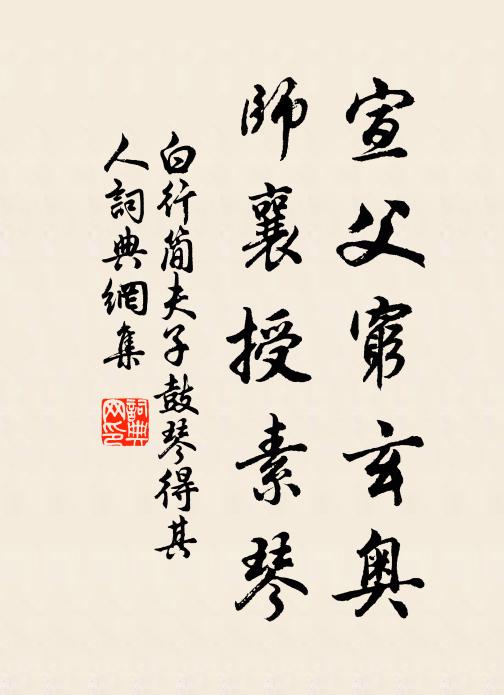 宣父窮玄奧
師襄授素琴
白行簡夫子鼓琴得其
人詞典網集
詞典
网印